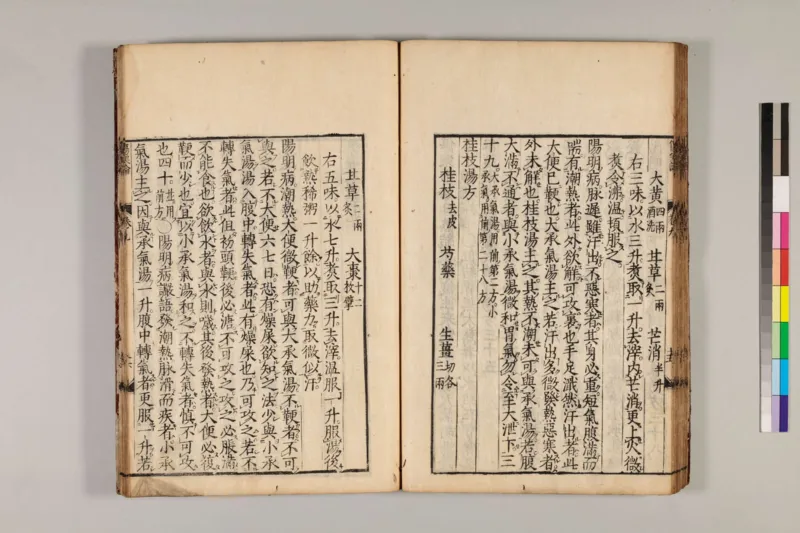 大黄四兩酒洗 甘草二兩炙 芒消半升
右三味以水三升煮取一升去滓内芒消更上火微
煮令沸溫頓服之
陽明病脉遲雖汗出不惡寒者其身必重短氣腹滿而
喘有潮熱者此外欲解可攻裏也手足濈然汗出者此
大便已鞕也大承氣湯主之若汗出多微發熱惡寒者
外未解也桂枝湯主之其熱不潮未可與承氣湯若腹
大滿不通者與小承氣湯微和胃氣勿令至大泄下三
十九大承氣湯用前第二方小承氣用前第二十八方
桂枝湯方
桂枝去皮 芍藥 生薑切各三兩
甘草炙二兩 大棗十二枚擘
右五味以水七升煮取三升去滓溫服一升服湯後
飲熱稀粥一升餘以助藥力取微似汗
陽明病潮熱大便微鞕者可與大承氣湯不鞕者不可
與之若不大便六七日恐有燥屎欲知之法少與小承
氣湯湯入腹中轉失氣者此有燥屎也乃可攻之若不
轉失氣者此但初頭鞕後必溏不可攻之攻之必脹滿
不能食也欲飲水者與水則噦其後發熱者大便必復
鞕而少也宜以小承氣湯和之不轉失氣者慎不可攻
也四十並用前方○陽明病讝語發潮熱脉滑而疾者小承
氣湯主之因與承氣湯一升腹中轉氣者更服一升若